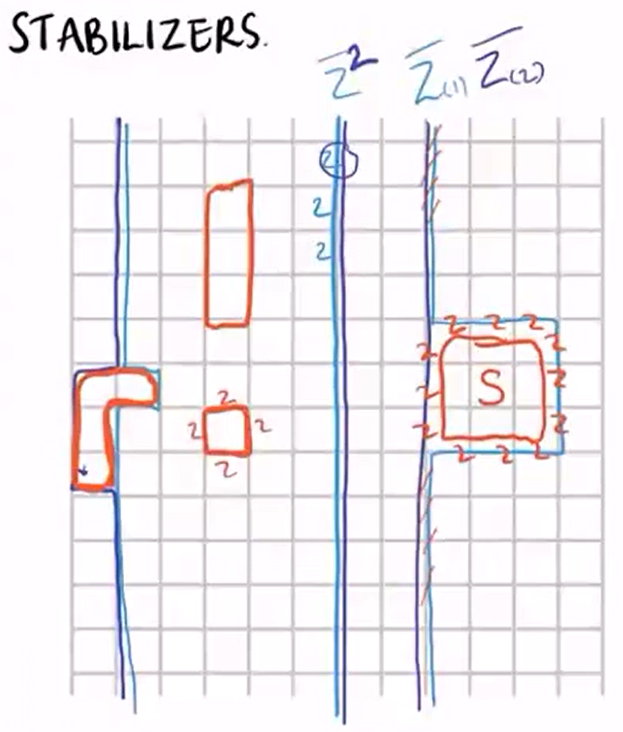 STABILIZERS.
Z̄² Z̄(1) Z̄(2)
Z
Z
Z
Z Z Z
Z Z
Z S Z
Z
Z Z Z Z
Z Z Z
Z